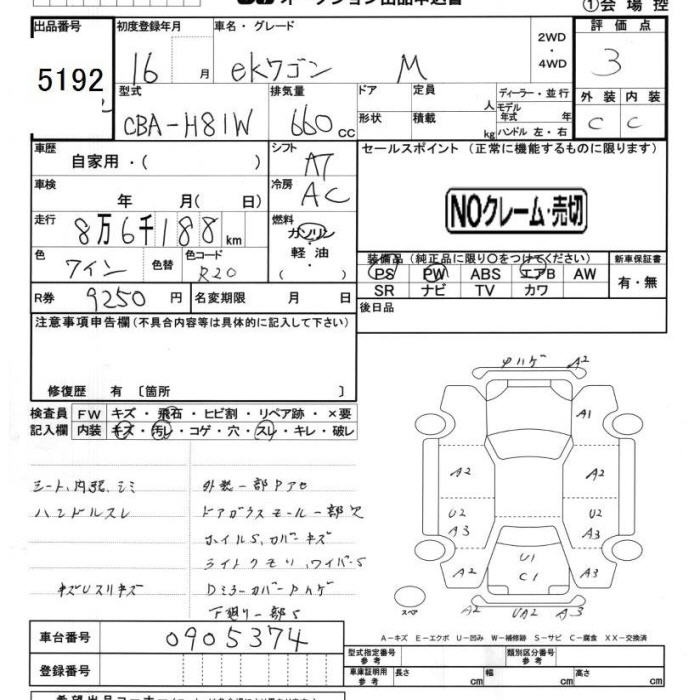 オークション出品申込書
①会場控
出品番号 初度登録年月 車名・グレード 2WD ・ 4WD 評価点
5192 16 月 ekワゴン M 3
型式 排気量 ドア 定員 人 ディーラー・並行 外装 内装
CBA-H81W 660 cc 形状 積載 kg モデル年式 年 ハンドル 左・右 C C
車歴 自家用・( ) シフト AT セールスポイント (正常に機能するものに限ります)
車検 年 月( 日) 冷房 AC
NOクレーム・売切
走行 8万6千188 km 燃料 ガソリン 軽油 ・
色 ワイン 色替 色コード R20
装備品(純正品に限り○をつけてください) 新車保証書
PS PW ABS エアB AW 有・無
SR ナビ TV カワ
R券 9250 円 名変期限 月 日 後日品
注意事項申告欄(不具合内容等は具体的に記入して下さい)
修復歴 有 〔箇所 〕
検査員 FW キズ・飛石・ヒビ割・リペア跡・×要
記入欄 内装 キズ・汚レ・コゲ・穴・スレ・キレ・破レ
シート、内張、シミ
ハンドルスレ
キズUスリキズ
外装一部Pアセ
ドアガラスモール一部欠
ホイルS、カバーキズ
ライトクモリ、ワイパーS
DミラーカバーPハゲ
下廻り一部S
PハゲA2
A1
A2 A2
U2 U2
A3 A3
U1
A2 C1 A3
スペ U A2 A3
A-キズ E-エクボ U-凹み W-補修跡 S-サビ C-腐食 XX-交換済
車台番号 0905374
型式指定番号 参考 類別区分番号 参考
登録番号 車庫証明用 参考 長さ cm 幅 cm 高さ cm